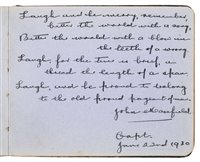 Laugh and be merry, remember,
better the world with a song,
Better the world with a blow in
the teeth of a wrong.
Laugh, for the time is brief, a
thread the length of a span.
Laugh, and be proud to belong
to the old proud pageant of man.
John Masefield.
Capt.
June 22nd 1930